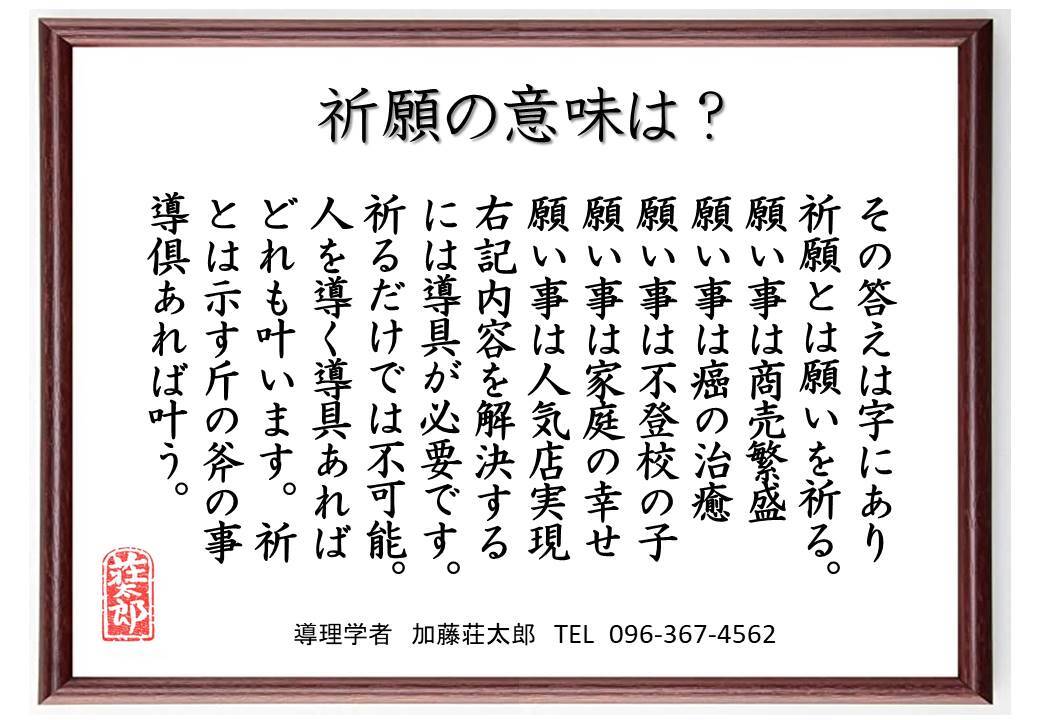 祈願の意味は？
その答えは字にあり
祈願とは願いを祈る。
願い事は商売繁盛
願い事は癌の治癒
願い事は不登校の子
願い事は家庭の幸せ
願い事は人気店実現
右記内容を解決する
には導具が必要です。
祈るだけでは不可能。
人を導く導具あれば
どれも叶います。 祈
とは示す斤の斧の事
導倶あれば叶う。
荘太郎
導理学者 加藤荘太郎 TEL 096-367-4562